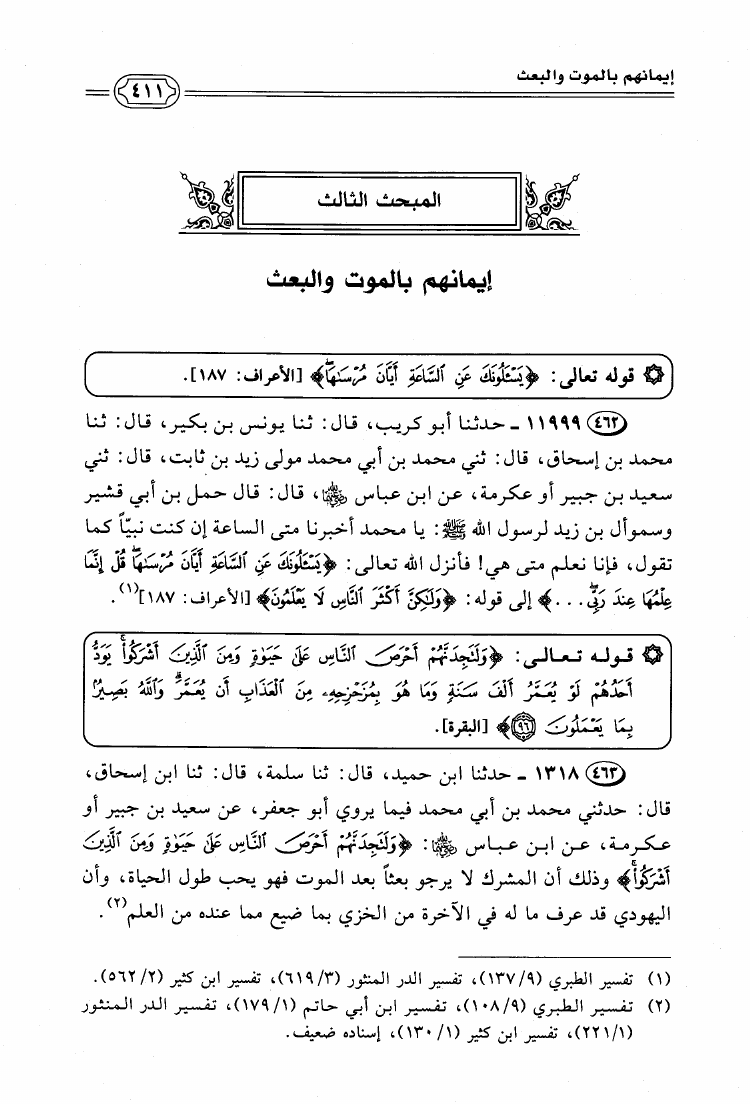 إيمانهم بالموت والبعث
٤١١
المبحث الثالث
إيمانهم بالموت والبعث
۞ قوله تعالى: ﴿يَسْـَٔلُونَكَ عَنِ ٱلسَّاعَةِ أَيَّانَ مُرْسَىٰهَا﴾ [الأعراف: ١٨٧].
٤٦٢ ١١٩٩٩ - حدثنا أبو كريب، قال: ثنا يونس بن بكير، قال: ثنا
محمد بن إسحاق، قال: ثني محمد بن أبي محمد مولى زيد بن ثابت، قال: ثني
سعيد بن جبير أو عكرمة، عن ابن عباس رضي الله عنهما، قال: قال حمل بن أبي قشير
وسموأل بن زيد لرسول الله ﷺ: يا محمد أخبرنا متى الساعة إن كنت نبيّاً كما
تقول، فإنا نعلم متى هي! فأنزل الله تعالى: ﴿يَسْـَٔلُونَكَ عَنِ ٱلسَّاعَةِ أَيَّانَ مُرْسَىٰهَا قُلْ إِنَّمَا
عِلْمُهَا عِندَ رَبِّى...﴾ إلى قوله: ﴿وَلَـٰكِنَّ أَكْثَرَ ٱلنَّاسِ لَا يَعْلَمُونَ﴾ [الأعراف: ١٨٧](١).
۞ قوله تعالى: ﴿وَلَتَجِدَنَّهُمْ أَحْرَصَ ٱلنَّاسِ عَلَىٰ حَيَوٰةٍ وَمِنَ ٱلَّذِينَ أَشْرَكُوا۟ يَوَدُّ
أَحَدُهُمْ لَوْ يُعَمَّرُ أَلْفَ سَنَةٍ وَمَا هُوَ بِمُزَحْزِحِهِۦ مِنَ ٱلْعَذَابِ أَن يُعَمَّرَ وَٱللَّهُ بَصِيرٌۢ
بِمَا يَعْمَلُونَ ٩٦﴾ [البقرة].
٤٦٣ ١٣١٨ - حدثنا ابن حميد، قال: ثنا سلمة، قال: ثنا ابن إسحاق،
قال: حدثني محمد بن أبي محمد فيما يروي أبو جعفر، عن سعيد بن جبير أو
عكرمة، عن ابن عباس رضي الله عنهما: ﴿وَلَتَجِدَنَّهُمْ أَحْرَصَ ٱلنَّاسِ عَلَىٰ حَيَوٰةٍ وَمِنَ ٱلَّذِينَ
أَشْرَكُوا۟﴾ وذلك أن المشرك لا يرجو بعثاً بعد الموت فهو يحب طول الحياة، وأن
اليهودي قد عرف ما له في الآخرة من الخزي بما ضيع مما عنده من العلم(٢).
(١) تفسير الطبري (١٣٧/٩)، تفسير الدر المنثور (٦١٩/٣)، تفسير ابن كثير (٥٦٢/٢).
(٢) تفسير الطبري (١٠٨/٩)، تفسير ابن أبي حاتم (١٧٩/١)، تفسير الدر المنثور
(٢٢١/١)، تفسير ابن كثير (١٣٠/١)، إسناده ضعيف.